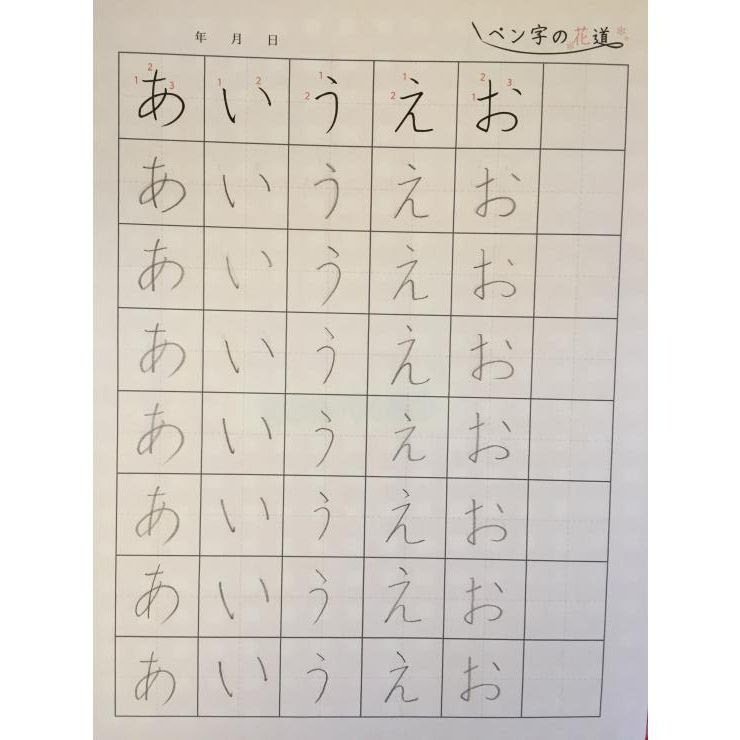 年 月 日
ペン字の花道
1 2 3 1 2 1 2 1 2 1 2 3
あ い う え お
あ い う え お
あ い う え お
あ い う え お
あ い う え お
あ い う え お
あ い う え お
あ い う え お